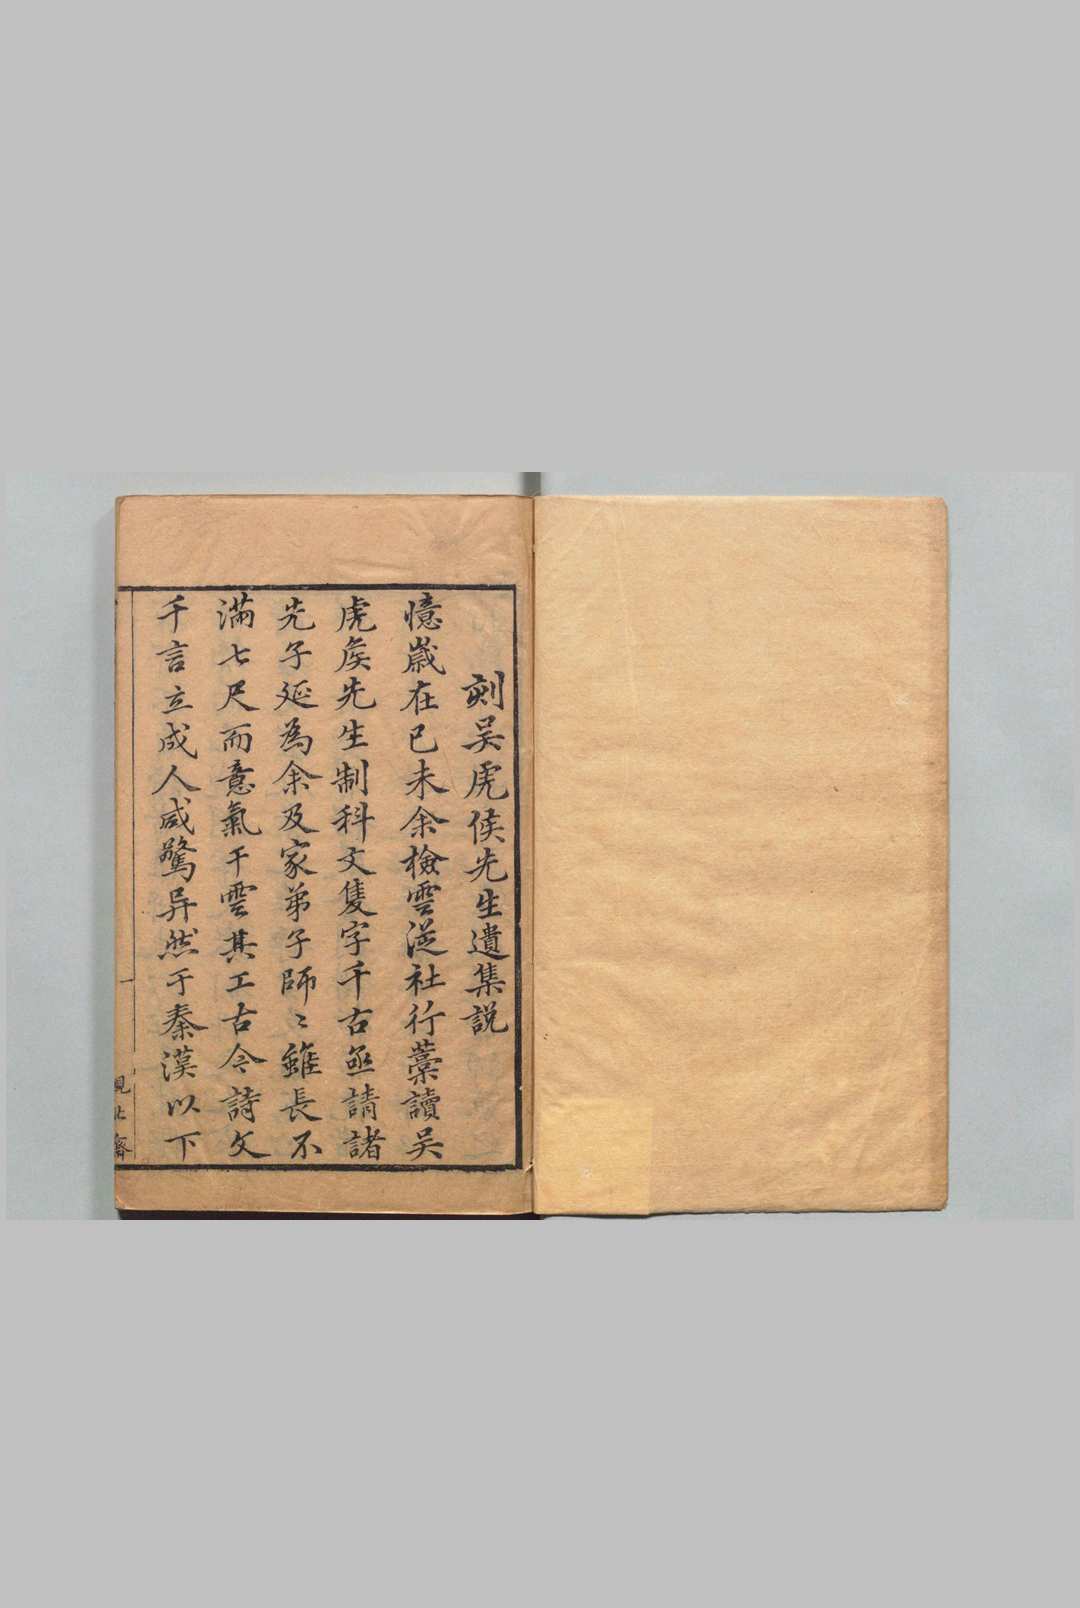 刻吴虎侯先生遺集説
憶嵗在已未余檢雲從社行藁讀吴
虎矦先生制科文隻字千古亟請諸
先子延為余及家弟子師〻雖長不
滿七尺而意氣干雲其工古今詩文
千言立成人咸驚异然于秦漢以下
一